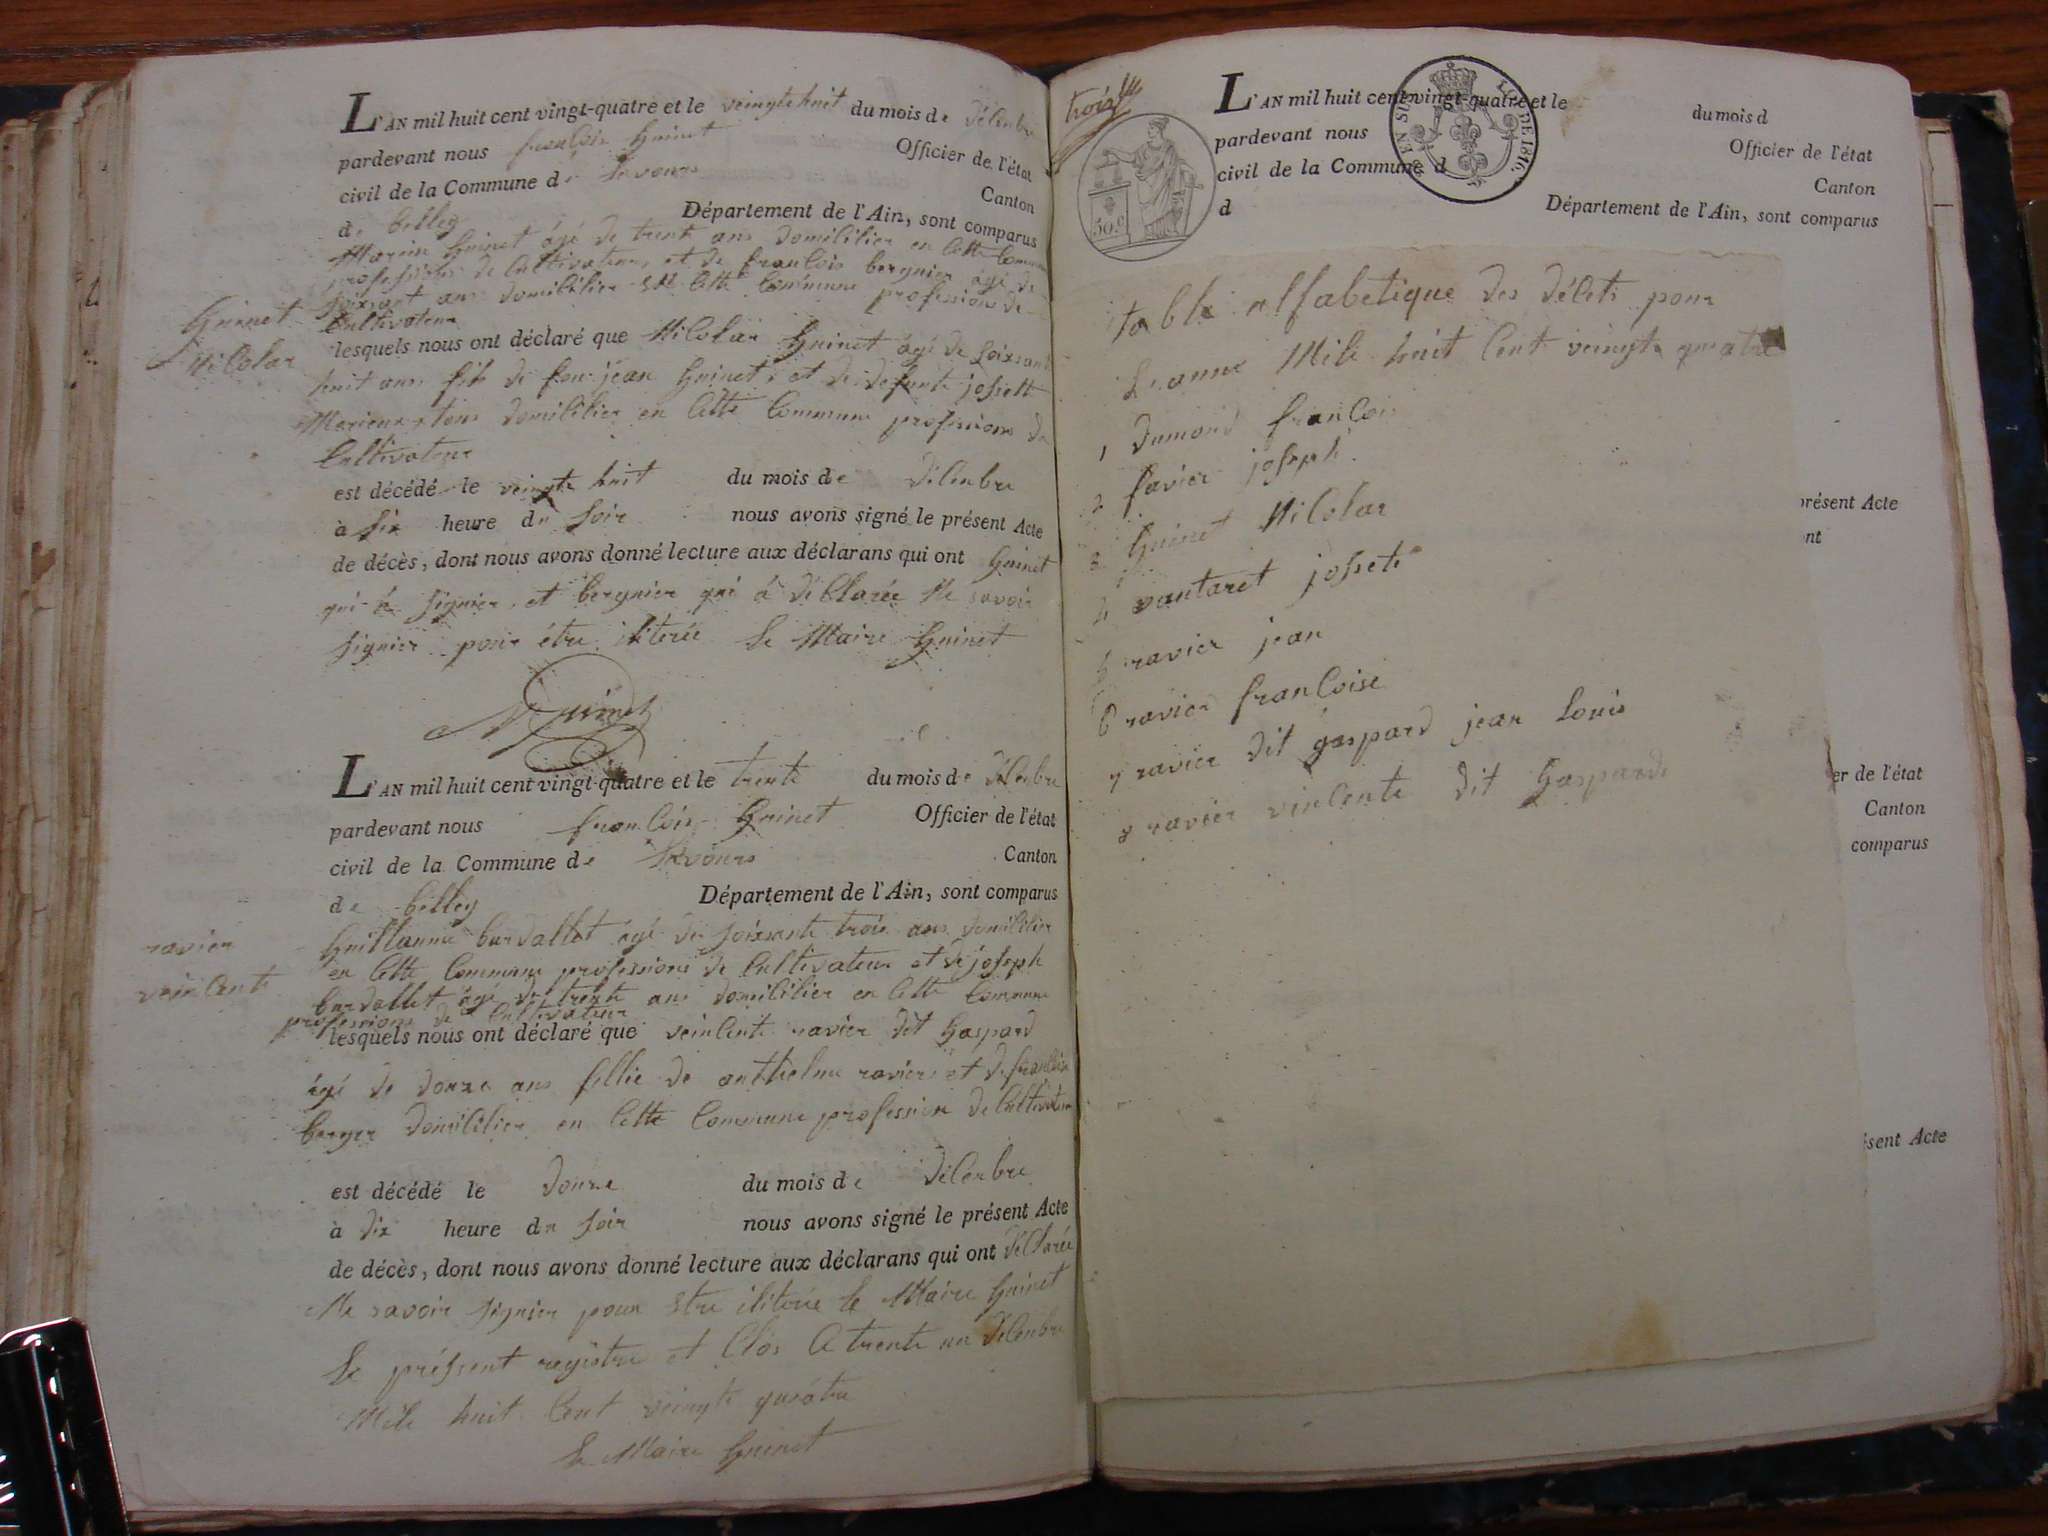 L'AN mil huit cent vingt-quatre et le veingte huit du mois de décenbre
pardevant nous francois Guinet Officier de l'état
civil de la Commune de Savours Canton
de belley Département de l'Ain, sont comparus
Marin Guinet âgé de trente ans domicilier en cette Commune
professions de Cultivateur, et de francois bergnier âgé de
soixsant ans domicilier cette Commune professions de
Cultivateur
Guinet
Nicolas
lesquels nous ont déclaré que Nicolas Guinet âgé de soixsant
huit ans fils de feu jean Guinet, et de defunte jossette
tous domicilier en cette Commune professions de
Cultivateur
est décédé le veingte huit du mois de décenbre
à six heure du soir nous avons signé le présent Acte
de décès, dont nous avons donné lecture aux déclarans qui ont Guinet
qui à signier, et bergnier qui à déClarée Ne savoir
signier pour étre iliterée Le Maire Guinet
Guinet
L'AN mil huit cent vingt-quatre et le trente du mois de décenbre
pardevant nous francois Guinet Officier de l'état
civil de la Commune de Savours Canton
de belley Département de l'Ain, sont comparus
ravier
veincente
Guillaume burdallet âgé de soixsante trois ans domicilier
en cette Commune professions de Cultivateur et de joseph
burdallet âgé de trente ans domicilier en cette Commune
professions de Cultivateur
lesquels nous ont déclaré que veincente ravier dit Gaspard
âgé de douze ans fillie de anthelme ravier et de francoise
berger domicilier en cette Commune profession de Cultivateur
est décédé le douze du mois de décenbre
à dix heure du soir nous avons signé le présent Acte
de décès, dont nous avons donné lecture aux déclarans qui ont déClarée
Ne savoir signier pour etre iliterée le Maire Guinet
Le préssent registre et Clos A trente un décenbre
Mile huit Cent veingte quatre
Le Maire Guinet
troix
50 c
L'AN mil huit cent vingt-quatre et le du mois d
pardevant nous Officier de l'état
civil de la Commune d Canton
d Département de l'Ain, sont comparus
EN SUS
DE 1816.
table alfabetique des décets pour
Le anne Mile huit Cent veingte quatre
1 dumond francois
2 favier joseph
3 Guinet Nicolas
4 vautaret jossete
5 ravier jean
6 ravier francoise
7 ravier dit gaspard jean Louis
8 ravier vincente dit Gasparde
présent Acte
nt
er de l'état
Canton
comparus
sent Acte